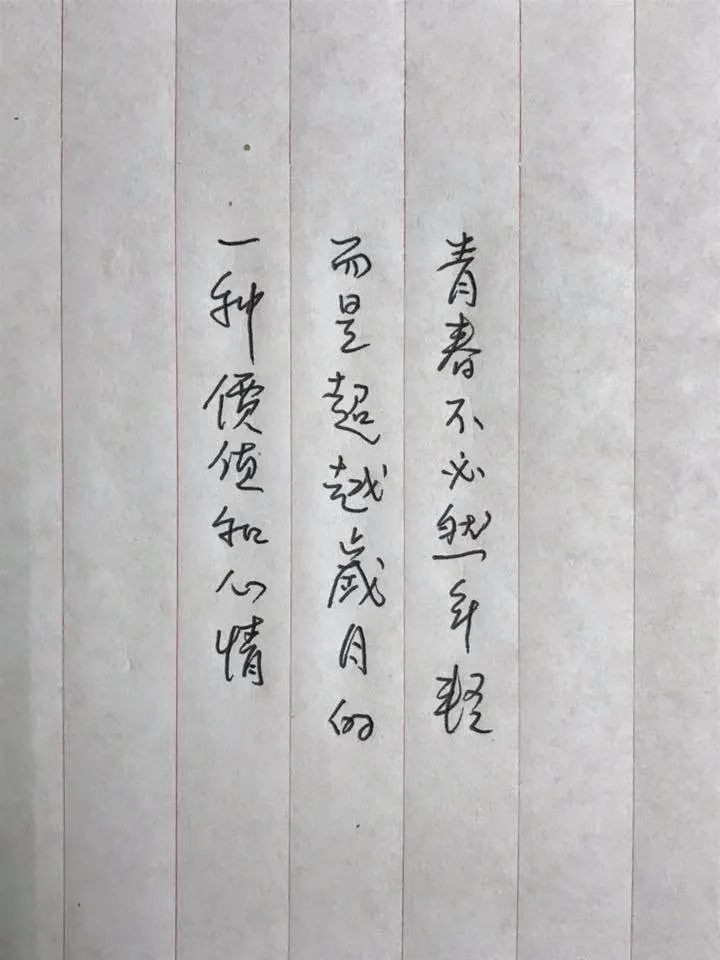 青春不必然年輕
而是超越歲月的
一种價值和心情